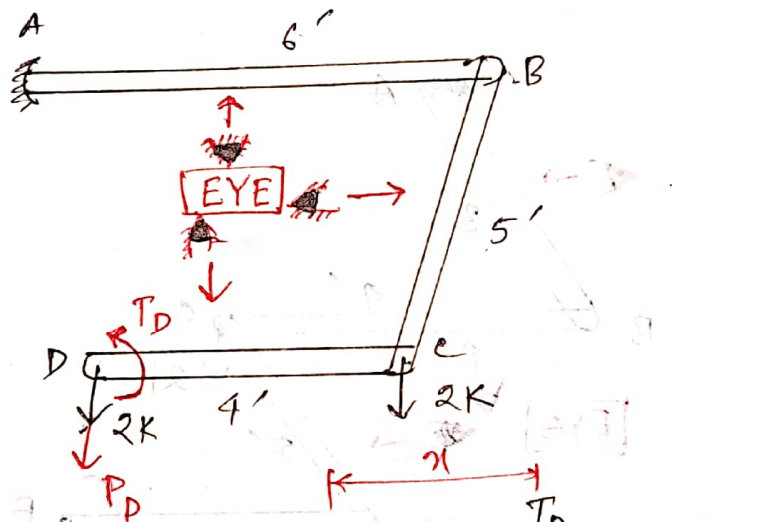 A
6'
B
EYE
5'
T_D
D
C
4'
2K
2K
P_D
x